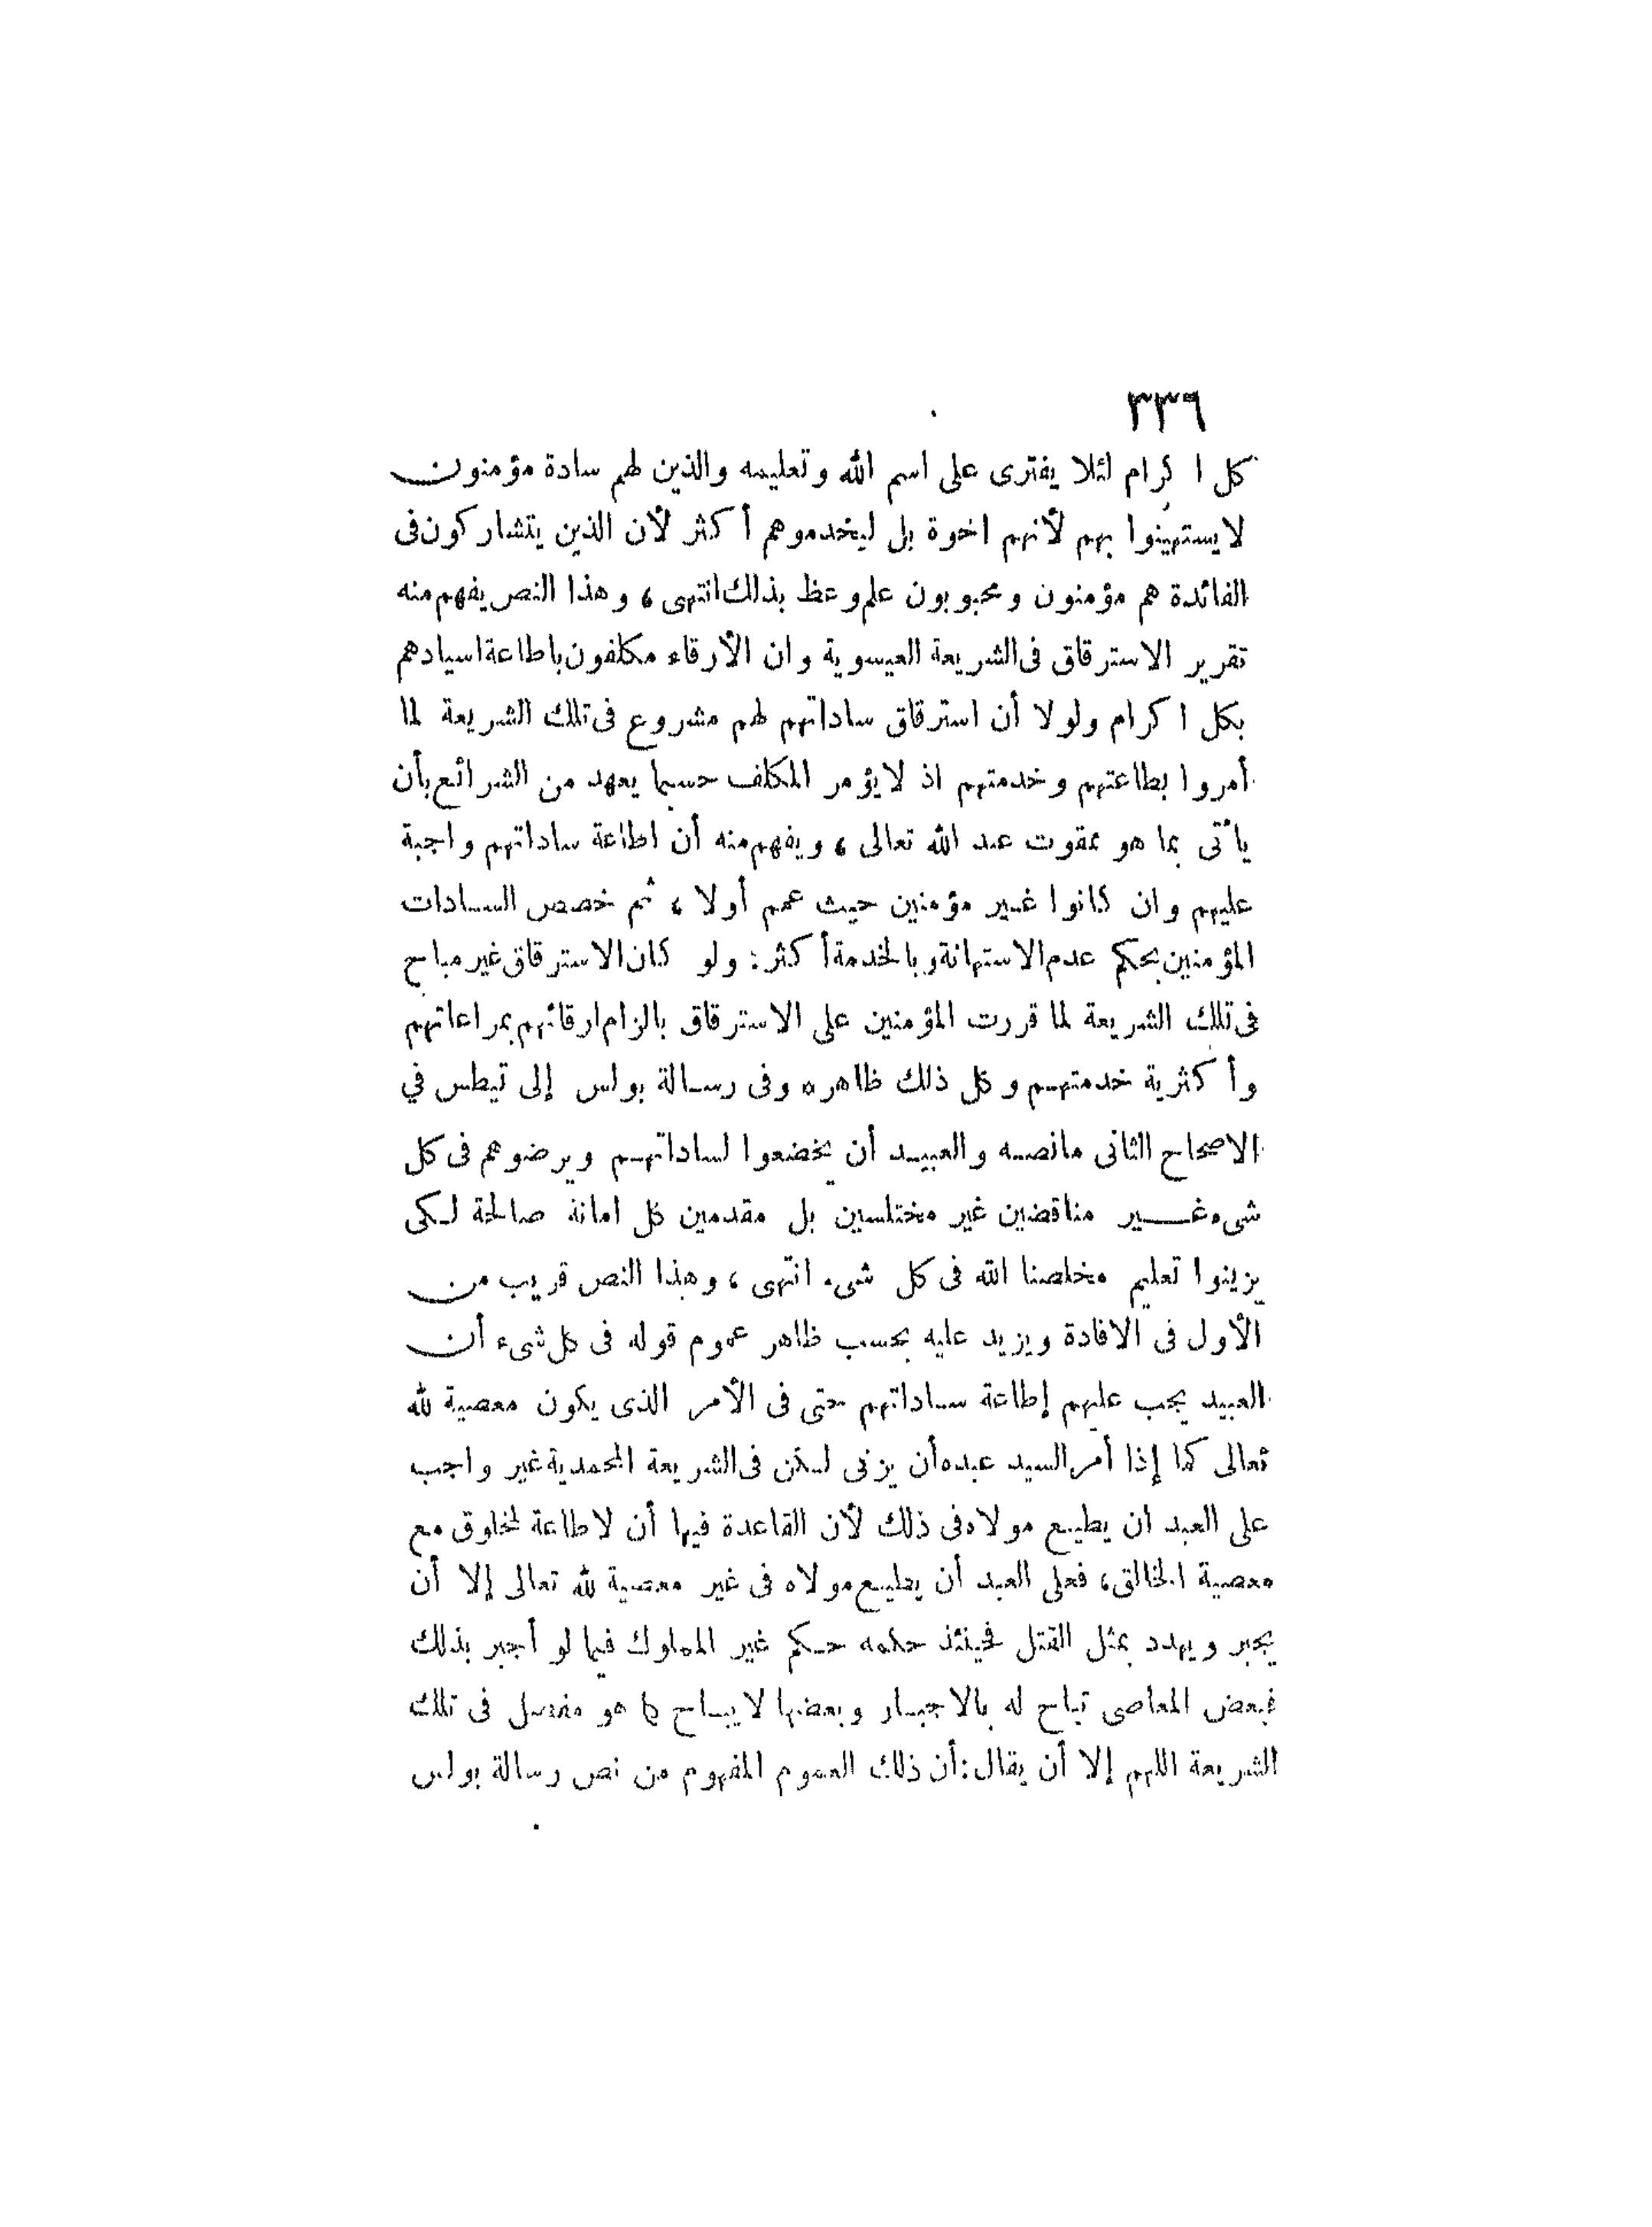 ٣٣٦
كل اكرام لئلا يفترى على اسم الله وتعليمه والذين لهم سادة مؤمنون
لايستهينوا بهم لأنهم اخوة بل ليخدموهم أكثر لأن الذين يتشاركون فى
الفائدة هم مؤمنون ومحبوبون علم وعظ بذلك انتهى، وهذا النص يفهم منه
تقرير الاسترقاق فى الشريعة العيسوية وان الأرقاء مكلفون باطاعة اسيادهم
بكل اكرام ولولا أن استرقاق ساداتهم لهم مشروع فى تلك الشريعة لما
أمروا بطاعتهم وخدمتهم اذ لايؤمر المكلف حسبما يعهد من الشرائع بأن
يأتى بما هو ممقوت عند الله تعالى، ويفهم منه أن اطاعة ساداتهم واجبة
عليهم وان كانوا غير مؤمنين حيث عمم أولا، ثم خصص السادات
المؤمنين بحكم عدم الاستهانة وبالخدمة أكثر: ولو كان الاسترقاق غير مباح
فى تلك الشريعة لما قررت المؤمنين على الاسترقاق بالزام ارقائهم بمراعاتهم
وأكثرية خدمتهم وكل ذلك ظاهره وفى رسالة بولس إلى تيطس في
الاصحاح الثانى مانصه والعبيد أن يخضعوا لساداتهم ويرضوهم فى كل
شىء غير مناقضين غير مختلسين بل مقدمين كل امانة صالحة لكى
يزينوا تعليم مخلصنا الله فى كل شىء انتهى، وهذا النص قريب من
الأول فى الافادة ويزيد عليه بحسب ظاهر عموم قوله فى كل شىء أن
العبيد يجب عليهم إطاعة ساداتهم حتى فى الأمر الذى يكون معصية لله
تعالى كما إذا أمر السيد عبده أن يزنى لكن فى الشريعة المحمدية غير واجب
على العبد ان يطيع مولاه فى ذلك لأن القاعدة فيها أن لاطاعة لمخلوق مع
معصية الخالق، فعلى العبد أن يطيع مولاه فى غير معصية لله تعالى إلا أن
يجبر ويهدد بمثل القتل فحينئذ حكمه حكم غير المملوك فيما لو أجبر بذلك
فبعض المعاصى تباح له بالاجبار وبعضها لايباح كما هو مفصل فى تلك
الشريعة اللهم إلا أن يقال: أن ذلك العموم المفهوم من نص رسالة بولس